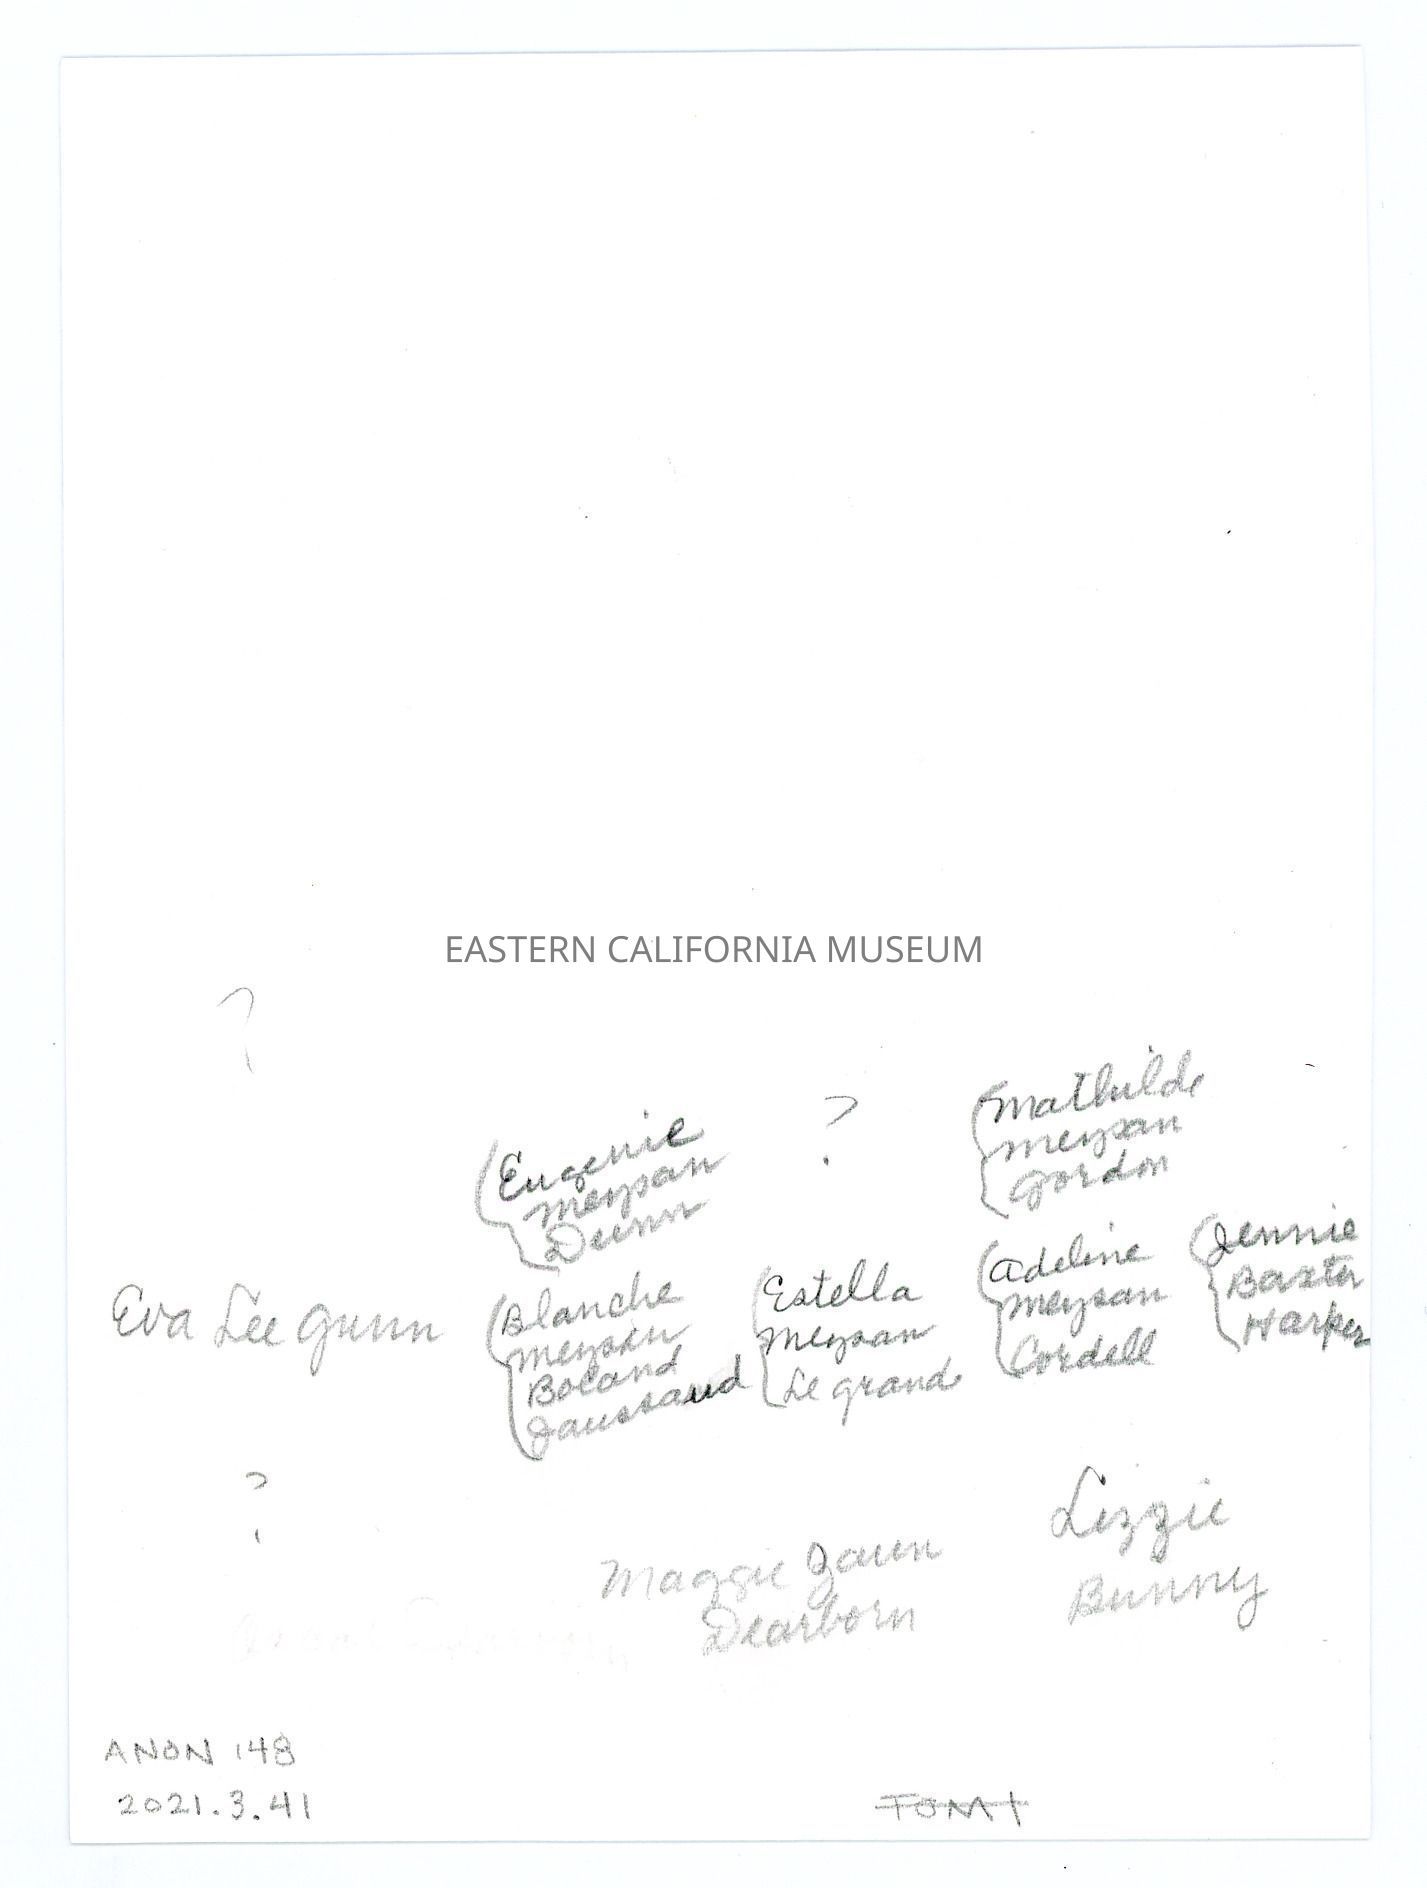 EASTERN CALIFORNIA MUSEUM
?
Mathilde
Meysan
Gordon
?
Eugenie
Meysan
Dunn
Jennie
Baxter
Harper
Adeline
Meysan
Cordell
Estella
Meysan
Le Grand
Blanche
Meysan
Boland
Jaussaud
Eva Lee Gunn
?
Lizzie
Bunny
Maggie
Dearborn
ANON 148
2021.3.41